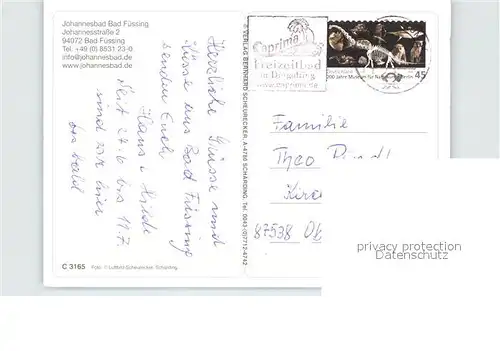 Johannesbad Bad Füssing
Johannesstraße 2
94072 Bad Füssing
Tel. +49 (0) 8531 23-0
info@johannesbad.de
www.johannesbad.de
Herzliche Grüsse und
Küsse aus Bad Füssing
senden Euch
Hans u. Hilde
Weit 27.6 bis 11.7.
sind wir hier
bis bald
C 3165 Foto: © Luftbild Scheurecker, Schärding
© VERLAG BERNHARD SCHEURECKER, A-4780 SCHÄRDING, Tel. 0043-(0)7712-4742
Caprima
Freizeitbad
in Dingolfing
www.caprima.de
Deutschland
200 Jahre Museum für Naturkunde Berlin
45
Familie
Theo
87538
privacy protection
Datenschutz